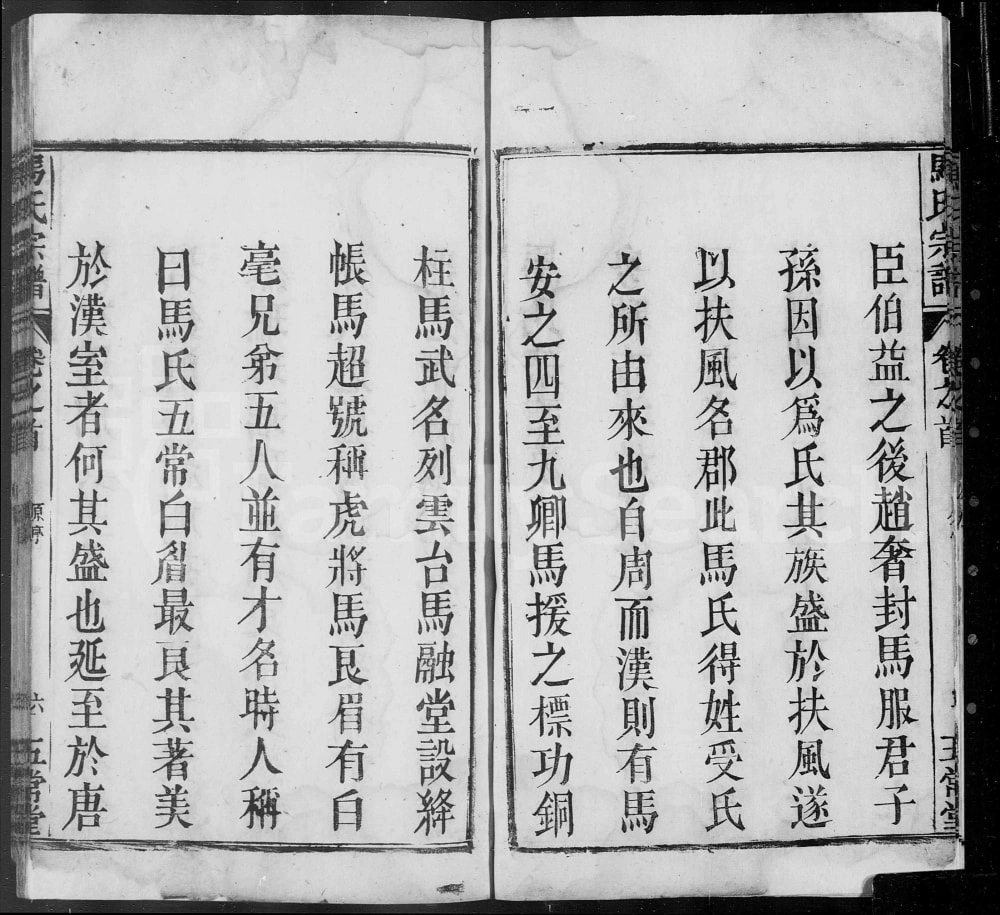 馬氏宗譜 卷之首
五常堂
臣伯益之後趙奢封馬服君子
孫因以為氏其族盛於扶風遂
以扶風名郡此馬氏得姓受氏
之所由來也自周而漢則有馬
安之四至九卿馬援之標功銅
柱馬武名列雲台馬融堂設絳
帳馬超號稱虎將馬良眉有白
毫兄弟五人並有才名時人稱
曰馬氏五常白眉最良其著美
於漢室者何其盛也延至於唐
馬氏宗譜 卷之首 六 五常堂
FamilySearch